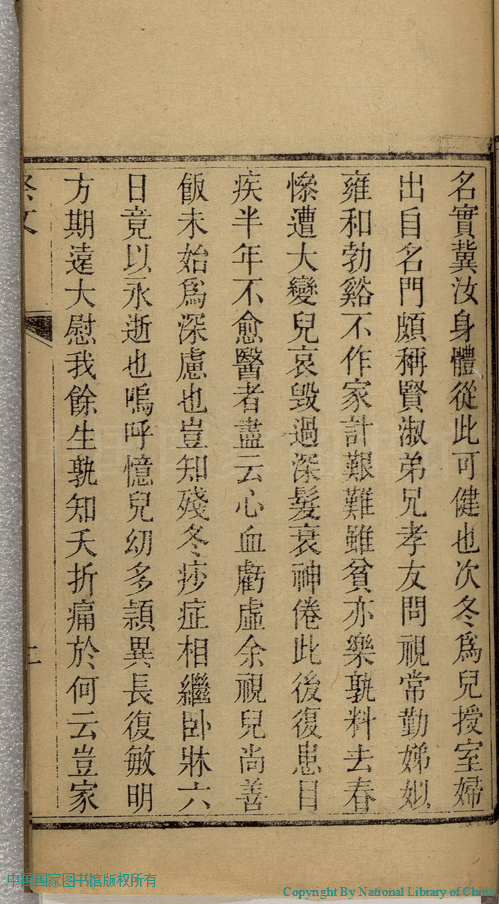 名實冀汝身體從此可健也次冬爲兒授室婦
出自名門頗稱賢淑弟兄孝友問視常勤娣姒
雍和勃谿不作家計艱難雖貧亦樂孰料去春
慘遭大變兒哀毀過深髮衰神倦此後復患目
疾半年不愈醫者盡云心血虧虛余視兒尚善
飯未始爲深慮也豈知殘冬痧症相繼卧牀六
日竟以永逝也嗚呼憶兒幼多穎異長復敏明
方期遠大慰我餘生孰知夭折痛於何云豈家
祭文
中国国家图书馆版权所有
Copyright By National Library of China